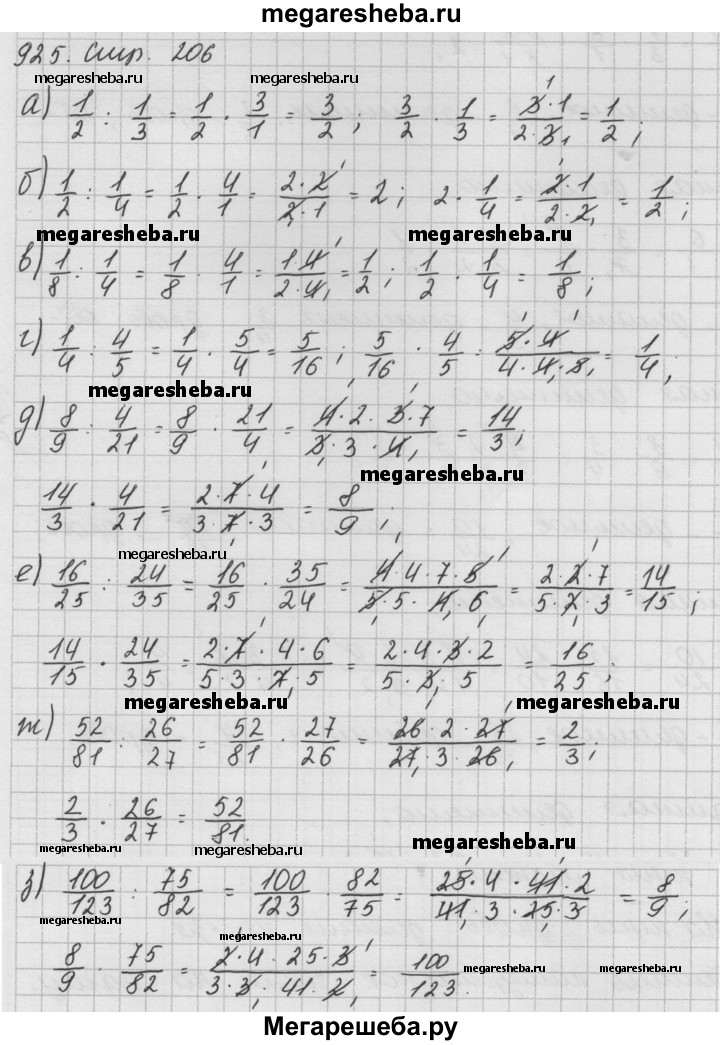 megaresheba.ru
925. Стр. 206
megaresheba.ru megaresheba.ru
а) 1/2 : 1/3 = 1/2 · 3/1 = 3/2; 3/2 · 1/3 = 3·1/2·3 = 1/2;
б) 1/2 : 1/4 = 1/2 · 4/1 = 2·2/2·1 = 2; 2 · 1/4 = 2·1/2·2 = 1/2;
megaresheba.ru megaresheba.ru
в) 1/8 : 1/4 = 1/8 · 4/1 = 1·4/2·4 = 1/2; 1/2 · 1/4 = 1/8;
г) 1/4 : 4/5 = 1/4 · 5/4 = 5/16; 5/16 · 4/5 = 5·4/4·4·5 = 1/4;
megaresheba.ru
д) 8/9 : 4/21 = 8/9 · 21/4 = 4·2·3·7/3·3·4 = 14/3;
megaresheba.ru
14/3 · 4/21 = 2·7·4/3·7·3 = 8/9;
megaresheba.ru
е) 16/25 : 24/35 = 16/25 · 35/24 = 4·4·7·5/5·5·4·6 = 2·2·7/5·2·3 = 14/15;
14/15 · 24/35 = 2·7·4·6/5·3·7·5 = 2·4·3·2/5·3·5 = 16/25;
megaresheba.ru megaresheba.ru
ж) 52/81 : 26/27 = 52/81 · 27/26 = 26·2·27/27·3·26 = 2/3;
2/3 · 26/27 = 52/81.
megaresheba.ru
megaresheba.ru
з) 100/123 : 75/82 = 100/123 · 82/75 = 25·4·41·2/41·3·25·3 = 8/9;
megaresheba.ru megaresheba.ru
8/9 · 75/82 = 2·4·25·3/3·3·41·2 = 100/123.
megaresheba.ru megaresheba.ru megaresheba.ru
Мегарешеба.ру